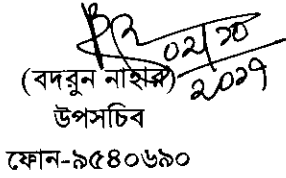 ০২/১০
২০১৭
(বদরুন নাহার)
উপসচিব
ফোন-৯৫৪০৬৯০